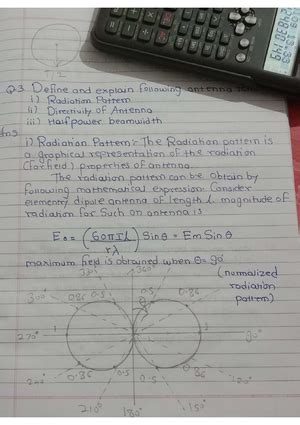 Q3 Define and explain following antenna
i) Radiation Pattern
ii) Directivity of Antenna
iii) Half power beamwidth
Ans
i) Radiation Pattern:- The Radiation pattern is
a graphical representation of the radiation
(farfield) properties of antenna.
The radiation pattern can be obtain by
following mathematical expression. Consider
elementry dipole antenna of length L. magnitude of
radiation for such an antenna is
Eθ = (60πIL / rλ) Sinθ = Em Sinθ
maximum field is obtained when θ = 90°
(normalized
radiation
pattern)
330° 360°
300° 0.86 0.5 0.5 0.86
270° 1 1 90°
240° 0.86 0.5 0.5 0.86 120°
210° 180° 150°